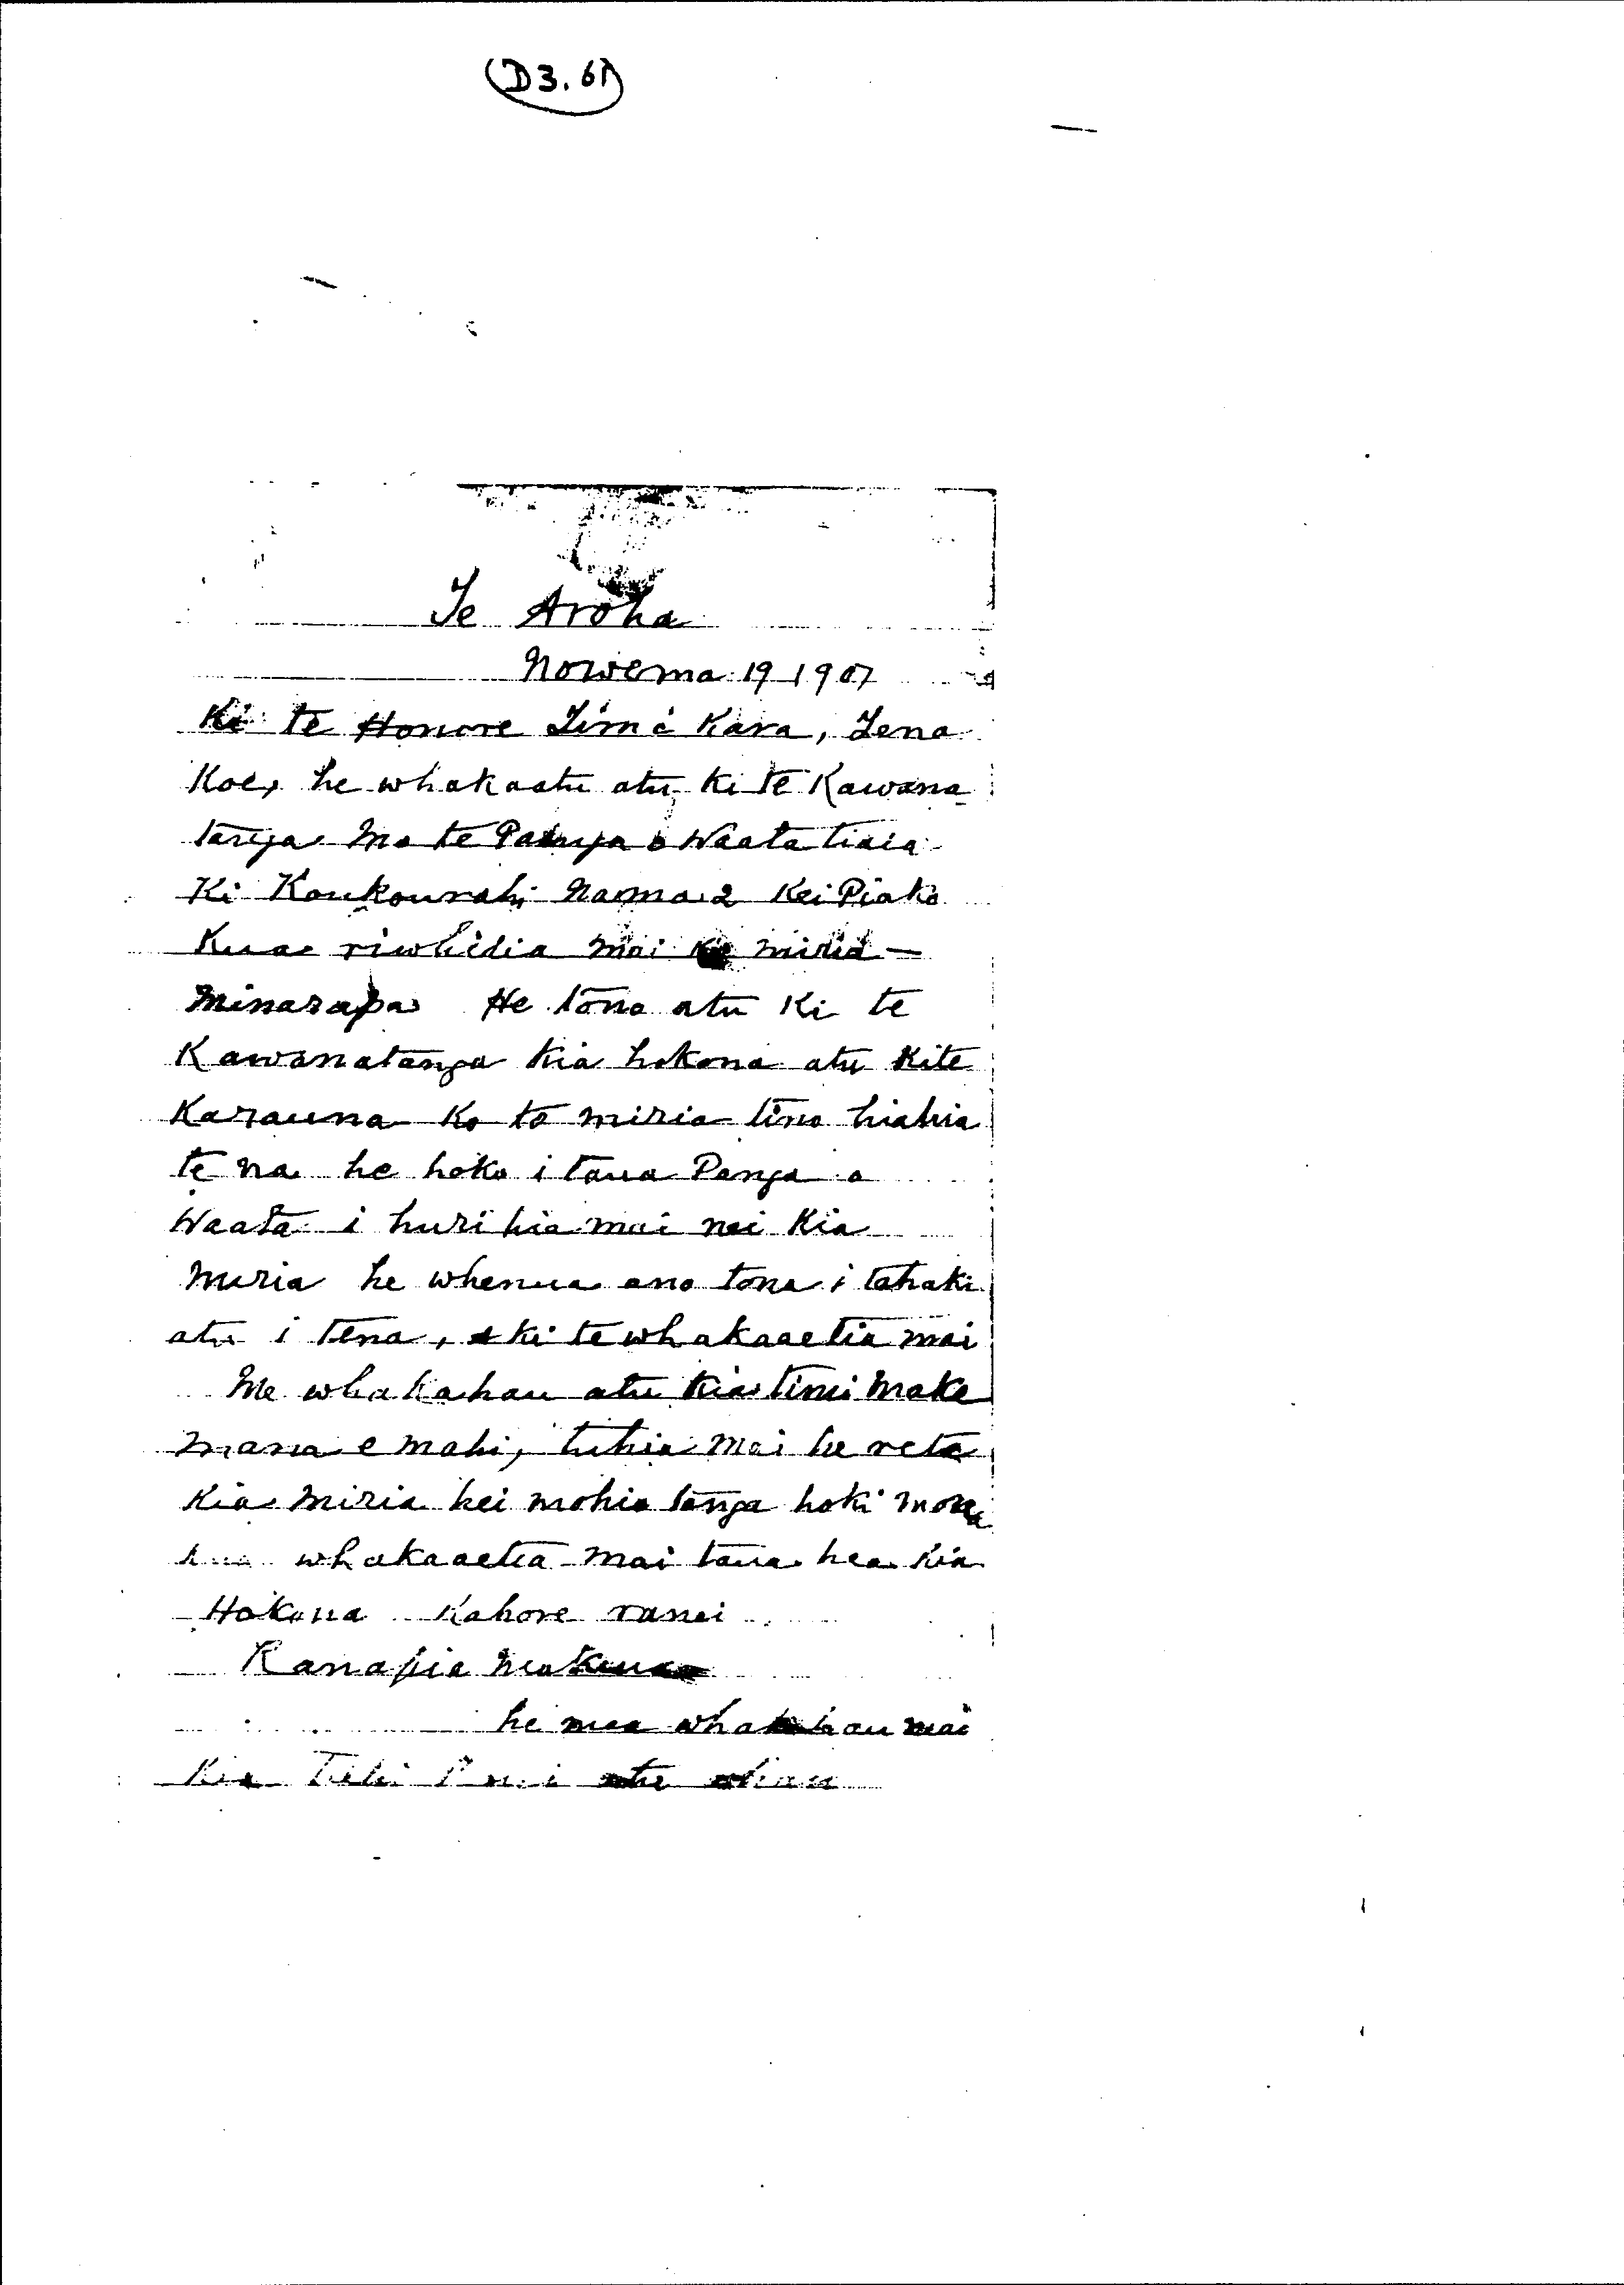 (D3.61)
Te Aroha
Nowema 19 1907
Ki te Honore Timi Kara, Tena
Koe, he whakaatu atu ki te Kawana
tanga mo te Panga o Waata tiaia
Ki Koukourahi Nama 2 Kei Piako
Kua riwhidia mai ki miria
Minarapa He tono atu Ki te
Kawanatanga kia hokona atu kite
Karauna Ko to miria tino hiahia
te na he hoko i taua Panga o
Waata i huri hia mai nei Kia
Miria he whenua ano tona i tahaki
atu i tena, ki te whakaaetia mai
Me whakahau atu kia timi Make
mana e mahi, tuhia mai he reta
Kia Miria hei mohio tanga hoki mona
kua whakaaetia mai taua hea kia
Hokona Kahore ranei
Ranapia
he mea whakahau mai
Kia Tuhi atu ahau